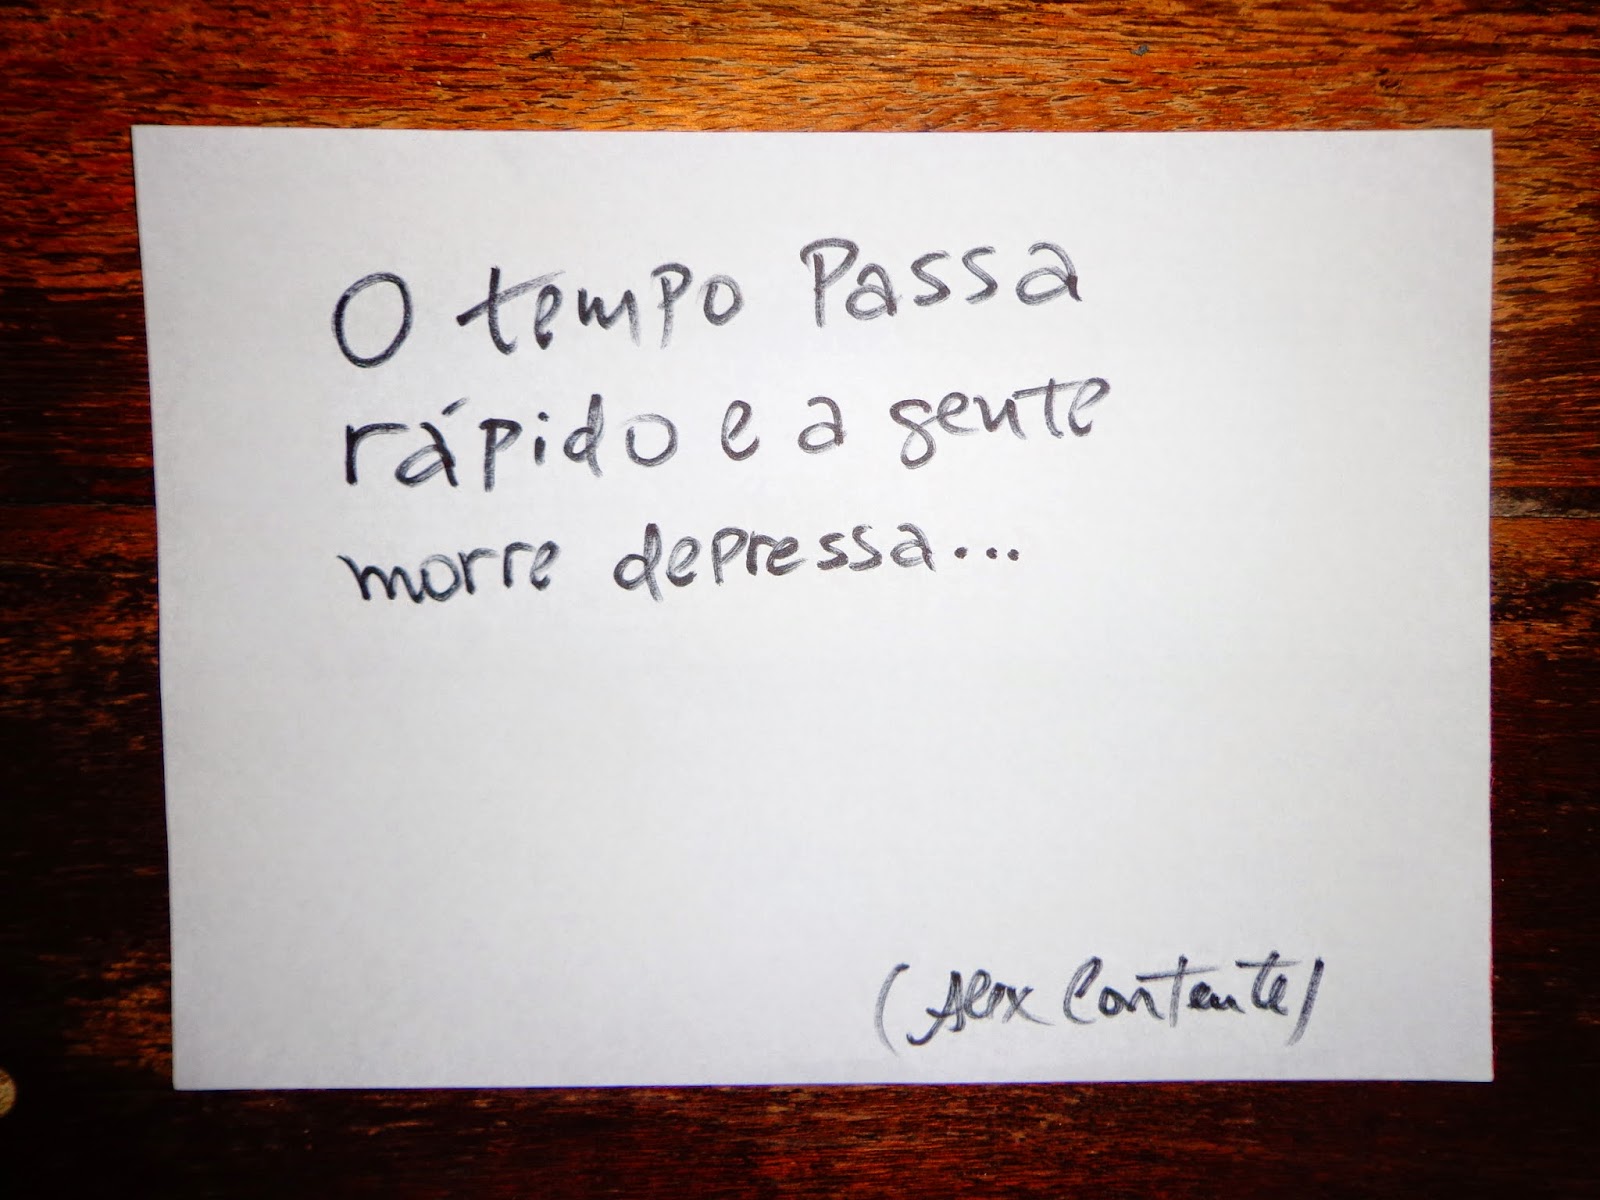 O tempo Passa
rápido e a gente
morre depressa...
(Alex Contente)